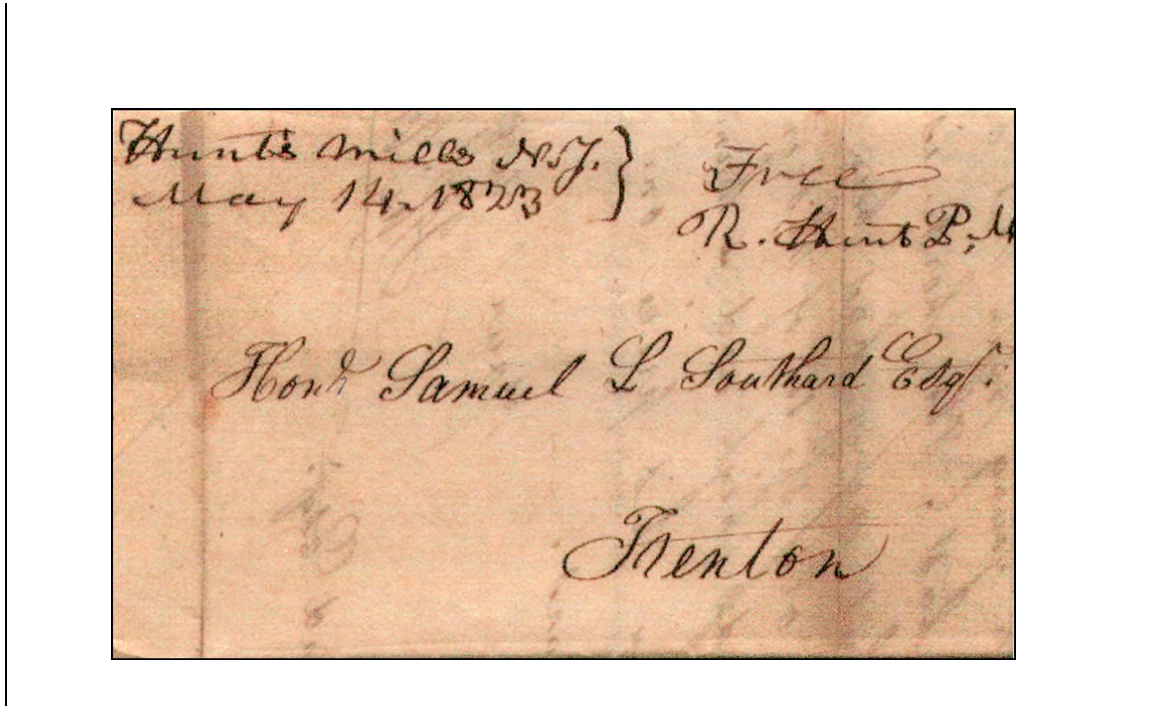 Hunt's Mills N.J. }
May 14. 1823
Free
R. Hunt P. M
Hond Samuel L Southard Esqr.
Trenton